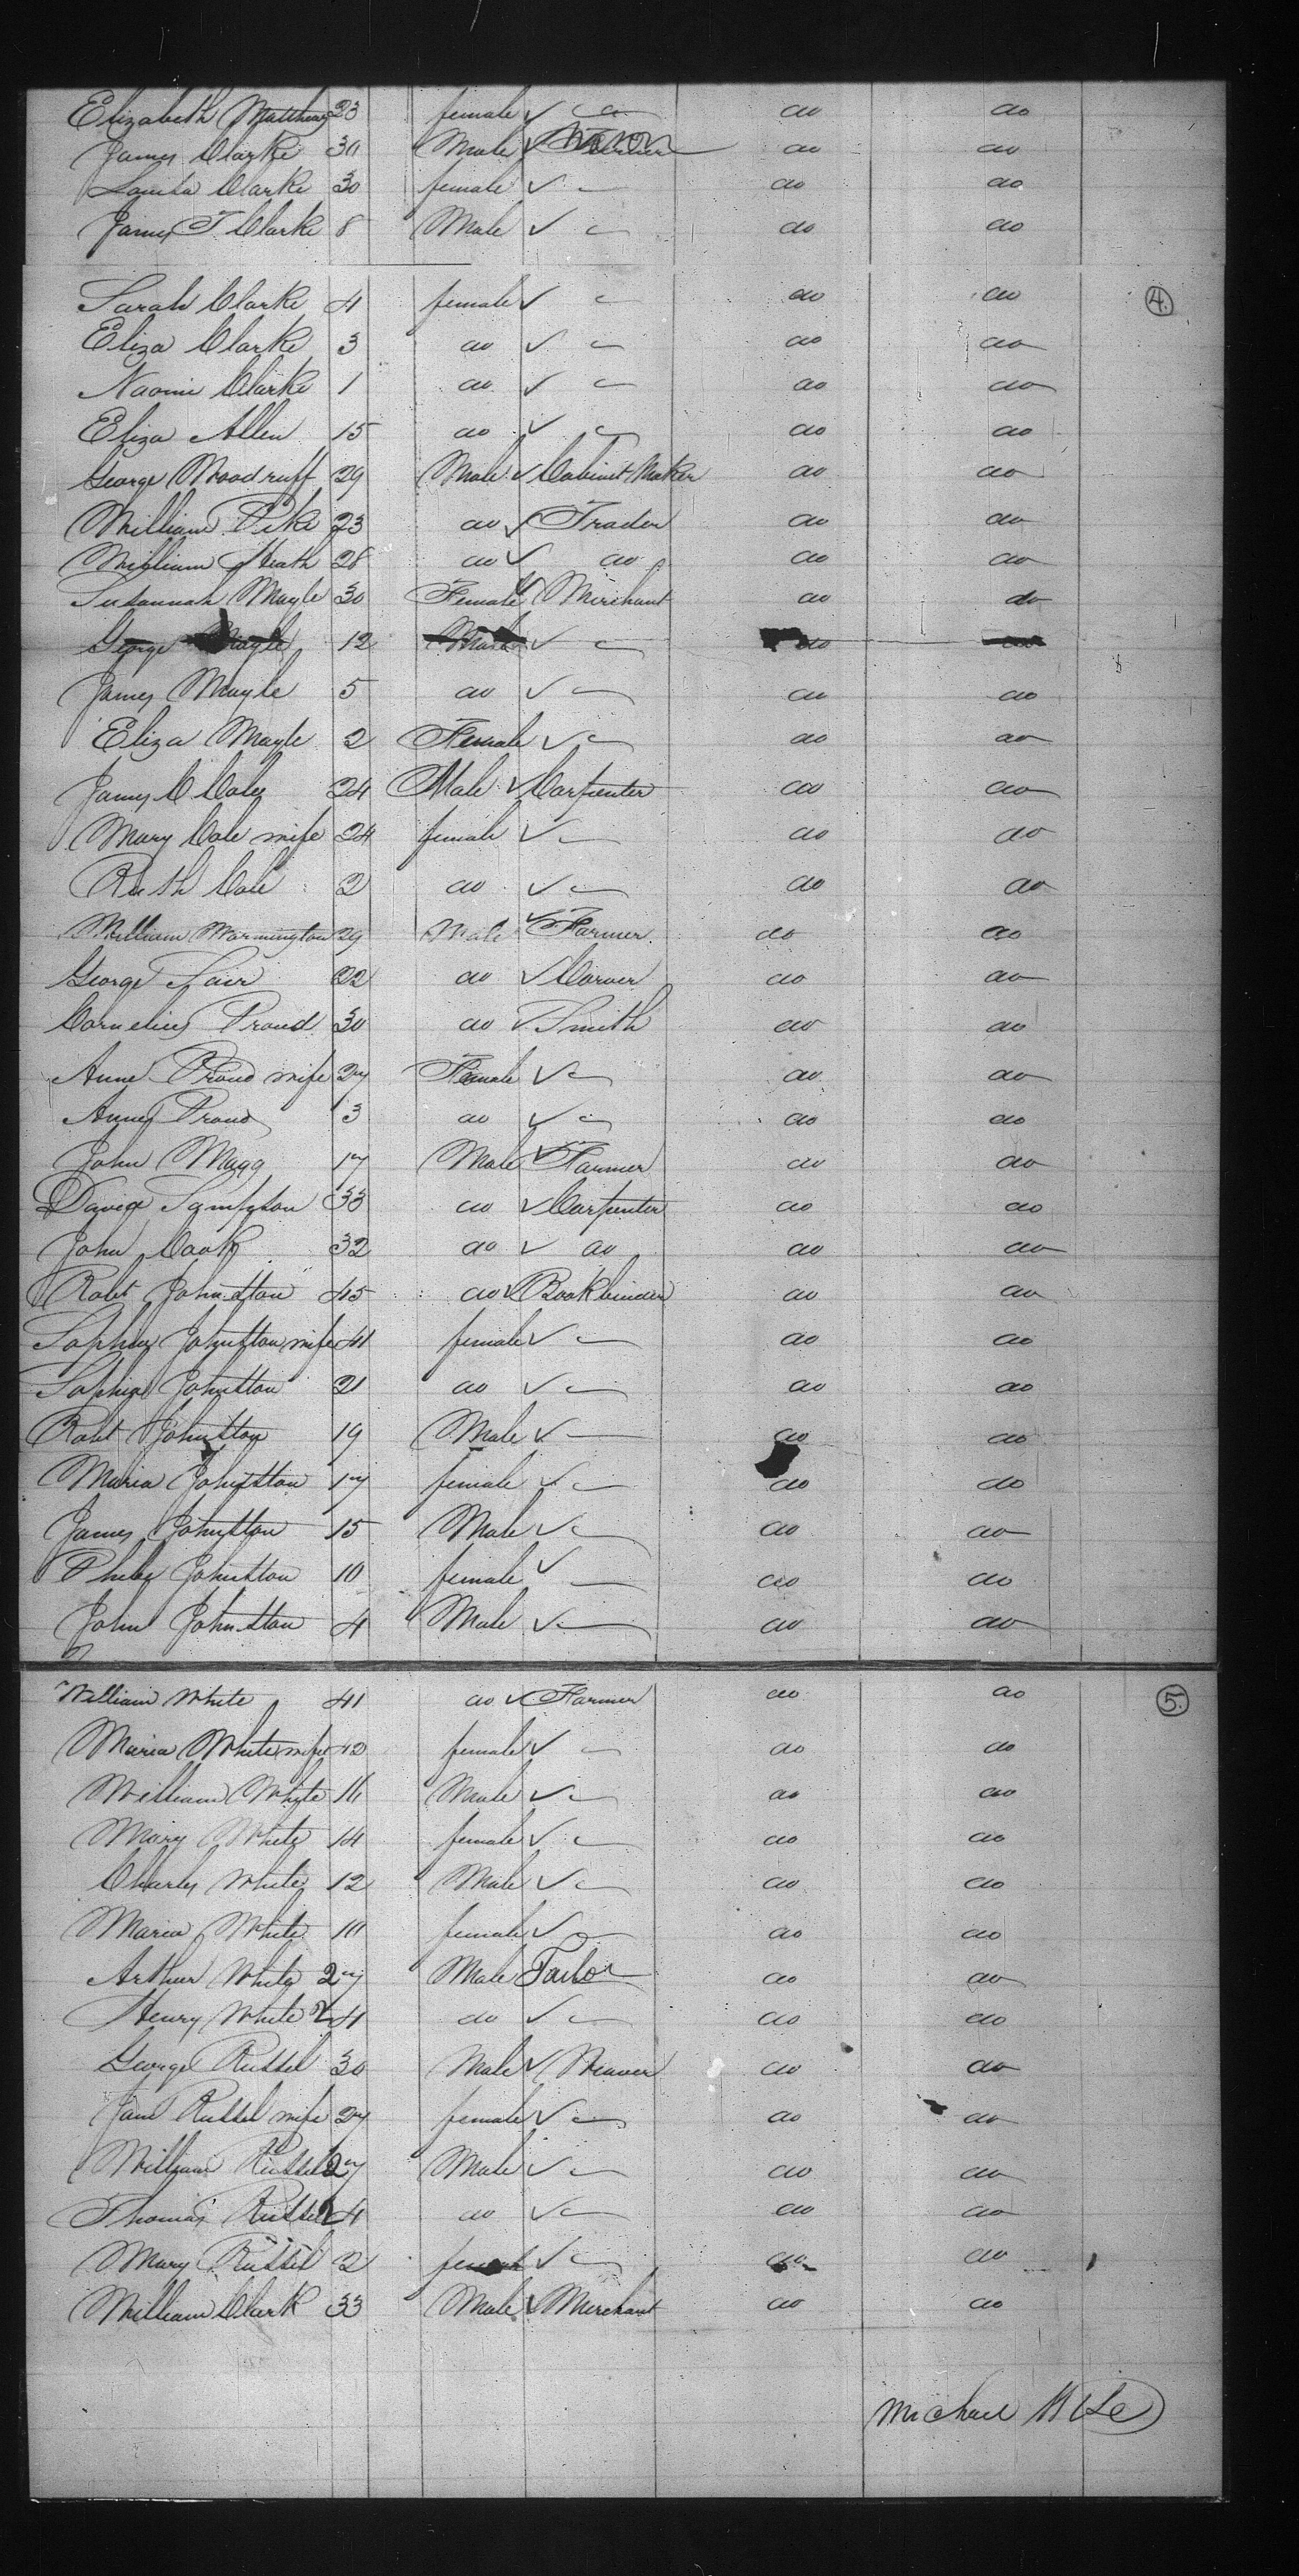 Elizabeth Matthews 23 female do do
James Clarke 30 Male Mason do do
Louisa Clarke 30 female do do
James T Clarke 8 Male do do
Sarah Clarke 4 female do do
4.
Eliza Clarke 3 do do do
Naomi Clarke 1 do do do
Eliza Allen 15 do do do
George Woodruff 29 Male Cabinet Maker do do
William Pike 23 do Trader do do
William Heath 28 do do do do
Susannah Mayle 30 Female Merchant do do
George Mayle 12 Male do do
James Mayle 5 do do do
Eliza Mayle 2 Female do do
James C Coles 24 Male Carpenter do do
Mary Cole wife 24 female do do
Ruth Cole 2 do do do
William Warmington 29 Male Farmer do do
George Fair 22 do Carver do do
Cornelius Proud 30 do Smith do do
Anne Proud wife 27 Female do do
Anne Proud 3 do do do
John Wagg 17 Male Farmer do do
David Sampson 33 do Carpenter do do
John Cook 32 do do do do
Robt Johnston 45 do Bookbinder do do
Sophia Johnston wife 41 female do do
Sophia Johnston 21 do do do
Robt Johnston 19 Male do do
Maria Johnston 17 female do do
James Johnston 15 Male do do
Phebe Johnston 10 female do do
John Johnston 4 Male do do
William White 41 do Farmer do do
5.
Maria White wife 42 female do do
William White 16 Male do do
Mary White 14 female do do
Charles White 12 Male do do
Maria White 10 female do do
Arthur White 27 Male Tailor do do
Henry White 24 do do do
George Russel 30 Male Weaver do do
Jane Russel wife 27 female do do
William Russel 27 Male do do
Thomas Russel 24 do do do
Mary Russel 2 female do do
William Clark 33 Male Merchant do do
Michael